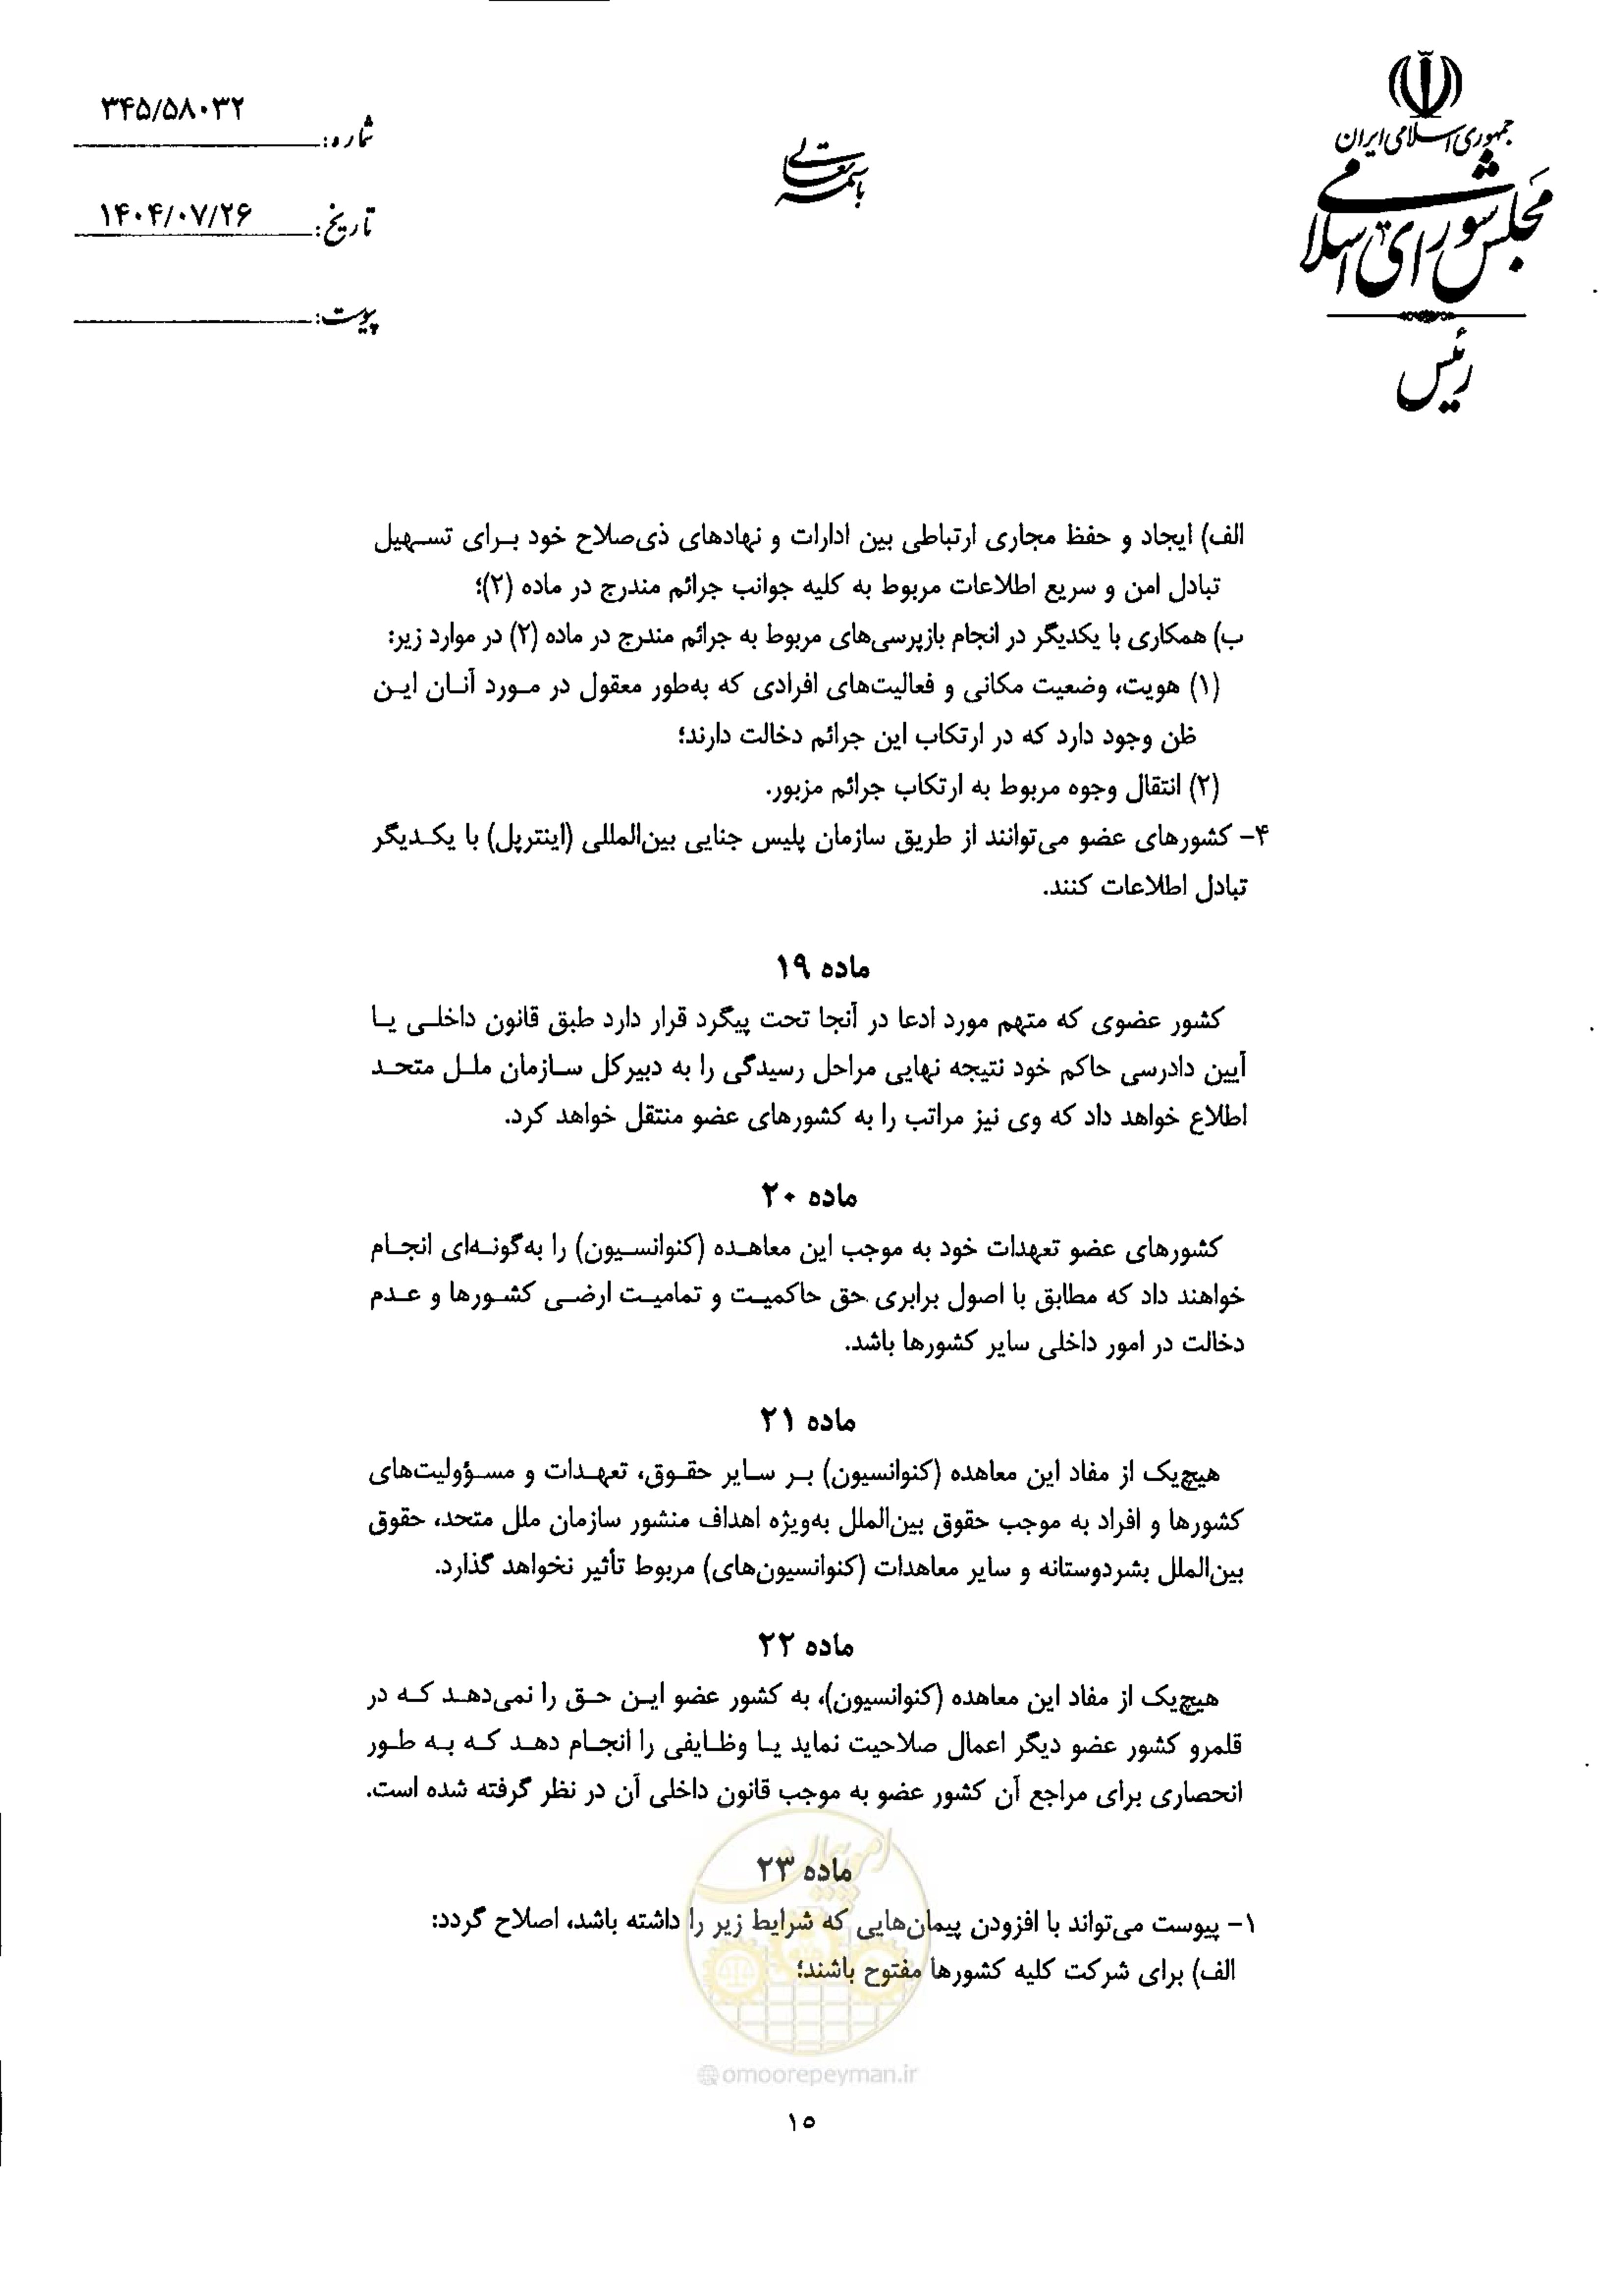 جمهوری اسلامی ایران
مجلس شورای اسلامی
رئیس
باسمه تعالی
شماره: ۳۴۵/۵۸۰۳۲
تاریخ: ۱۴۰۴/۰۷/۲۶
پیوست:
الف) ایجاد و حفظ مجاری ارتباطی بین ادارات و نهادهای ذی‌صلاح خود برای تسهیل
تبادل امن و سریع اطلاعات مربوط به کلیه جوانب جرائم مندرج در ماده (۲)؛
ب) همکاری با یکدیگر در انجام بازپرسی‌های مربوط به جرائم مندرج در ماده (۲) در موارد زیر:
(۱) هویت، وضعیت مکانی و فعالیت‌های افرادی که به‌طور معقول در مورد آنان این
ظن وجود دارد که در ارتکاب این جرائم دخالت دارند؛
(۲) انتقال وجوه مربوط به ارتکاب جرائم مزبور.
۴- کشورهای عضو می‌توانند از طریق سازمان پلیس جنایی بین‌المللی (اینترپل) با یکدیگر
تبادل اطلاعات کنند.
ماده ۱۹
کشور عضوی که متهم مورد ادعا در آنجا تحت پیگرد قرار دارد طبق قانون داخلی یا
آیین دادرسی حاکم خود نتیجه نهایی مراحل رسیدگی را به دبیرکل سازمان ملل متحد
اطلاع خواهد داد که وی نیز مراتب را به کشورهای عضو منتقل خواهد کرد.
ماده ۲۰
کشورهای عضو تعهدات خود به موجب این معاهده (کنوانسیون) را به‌گونه‌ای انجام
خواهند داد که مطابق با اصول برابری حق حاکمیت و تمامیت ارضی کشورها و عدم
دخالت در امور داخلی سایر کشورها باشد.
ماده ۲۱
هیچ‌یک از مفاد این معاهده (کنوانسیون) بر سایر حقوق، تعهدات و مسؤولیت‌های
کشورها و افراد به موجب حقوق بین‌الملل به‌ویژه اهداف منشور سازمان ملل متحد، حقوق
بین‌الملل بشردوستانه و سایر معاهدات (کنوانسیون‌های) مربوط تأثیر نخواهد گذارد.
ماده ۲۲
هیچ‌یک از مفاد این معاهده (کنوانسیون)، به کشور عضو این حق را نمی‌دهد که در
قلمرو کشور عضو دیگر اعمال صلاحیت نماید یا وظایفی را انجام دهد که به طور
انحصاری برای مراجع آن کشور عضو به موجب قانون داخلی آن در نظر گرفته شده است.
ماده ۲۳
۱- پیوست می‌تواند با افزودن پیمان‌هایی که شرایط زیر را داشته باشد، اصلاح گردد:
الف) برای شرکت کلیه کشورها مفتوح باشند؛
امور پیمان
@omoorepeyman.ir
۱۵